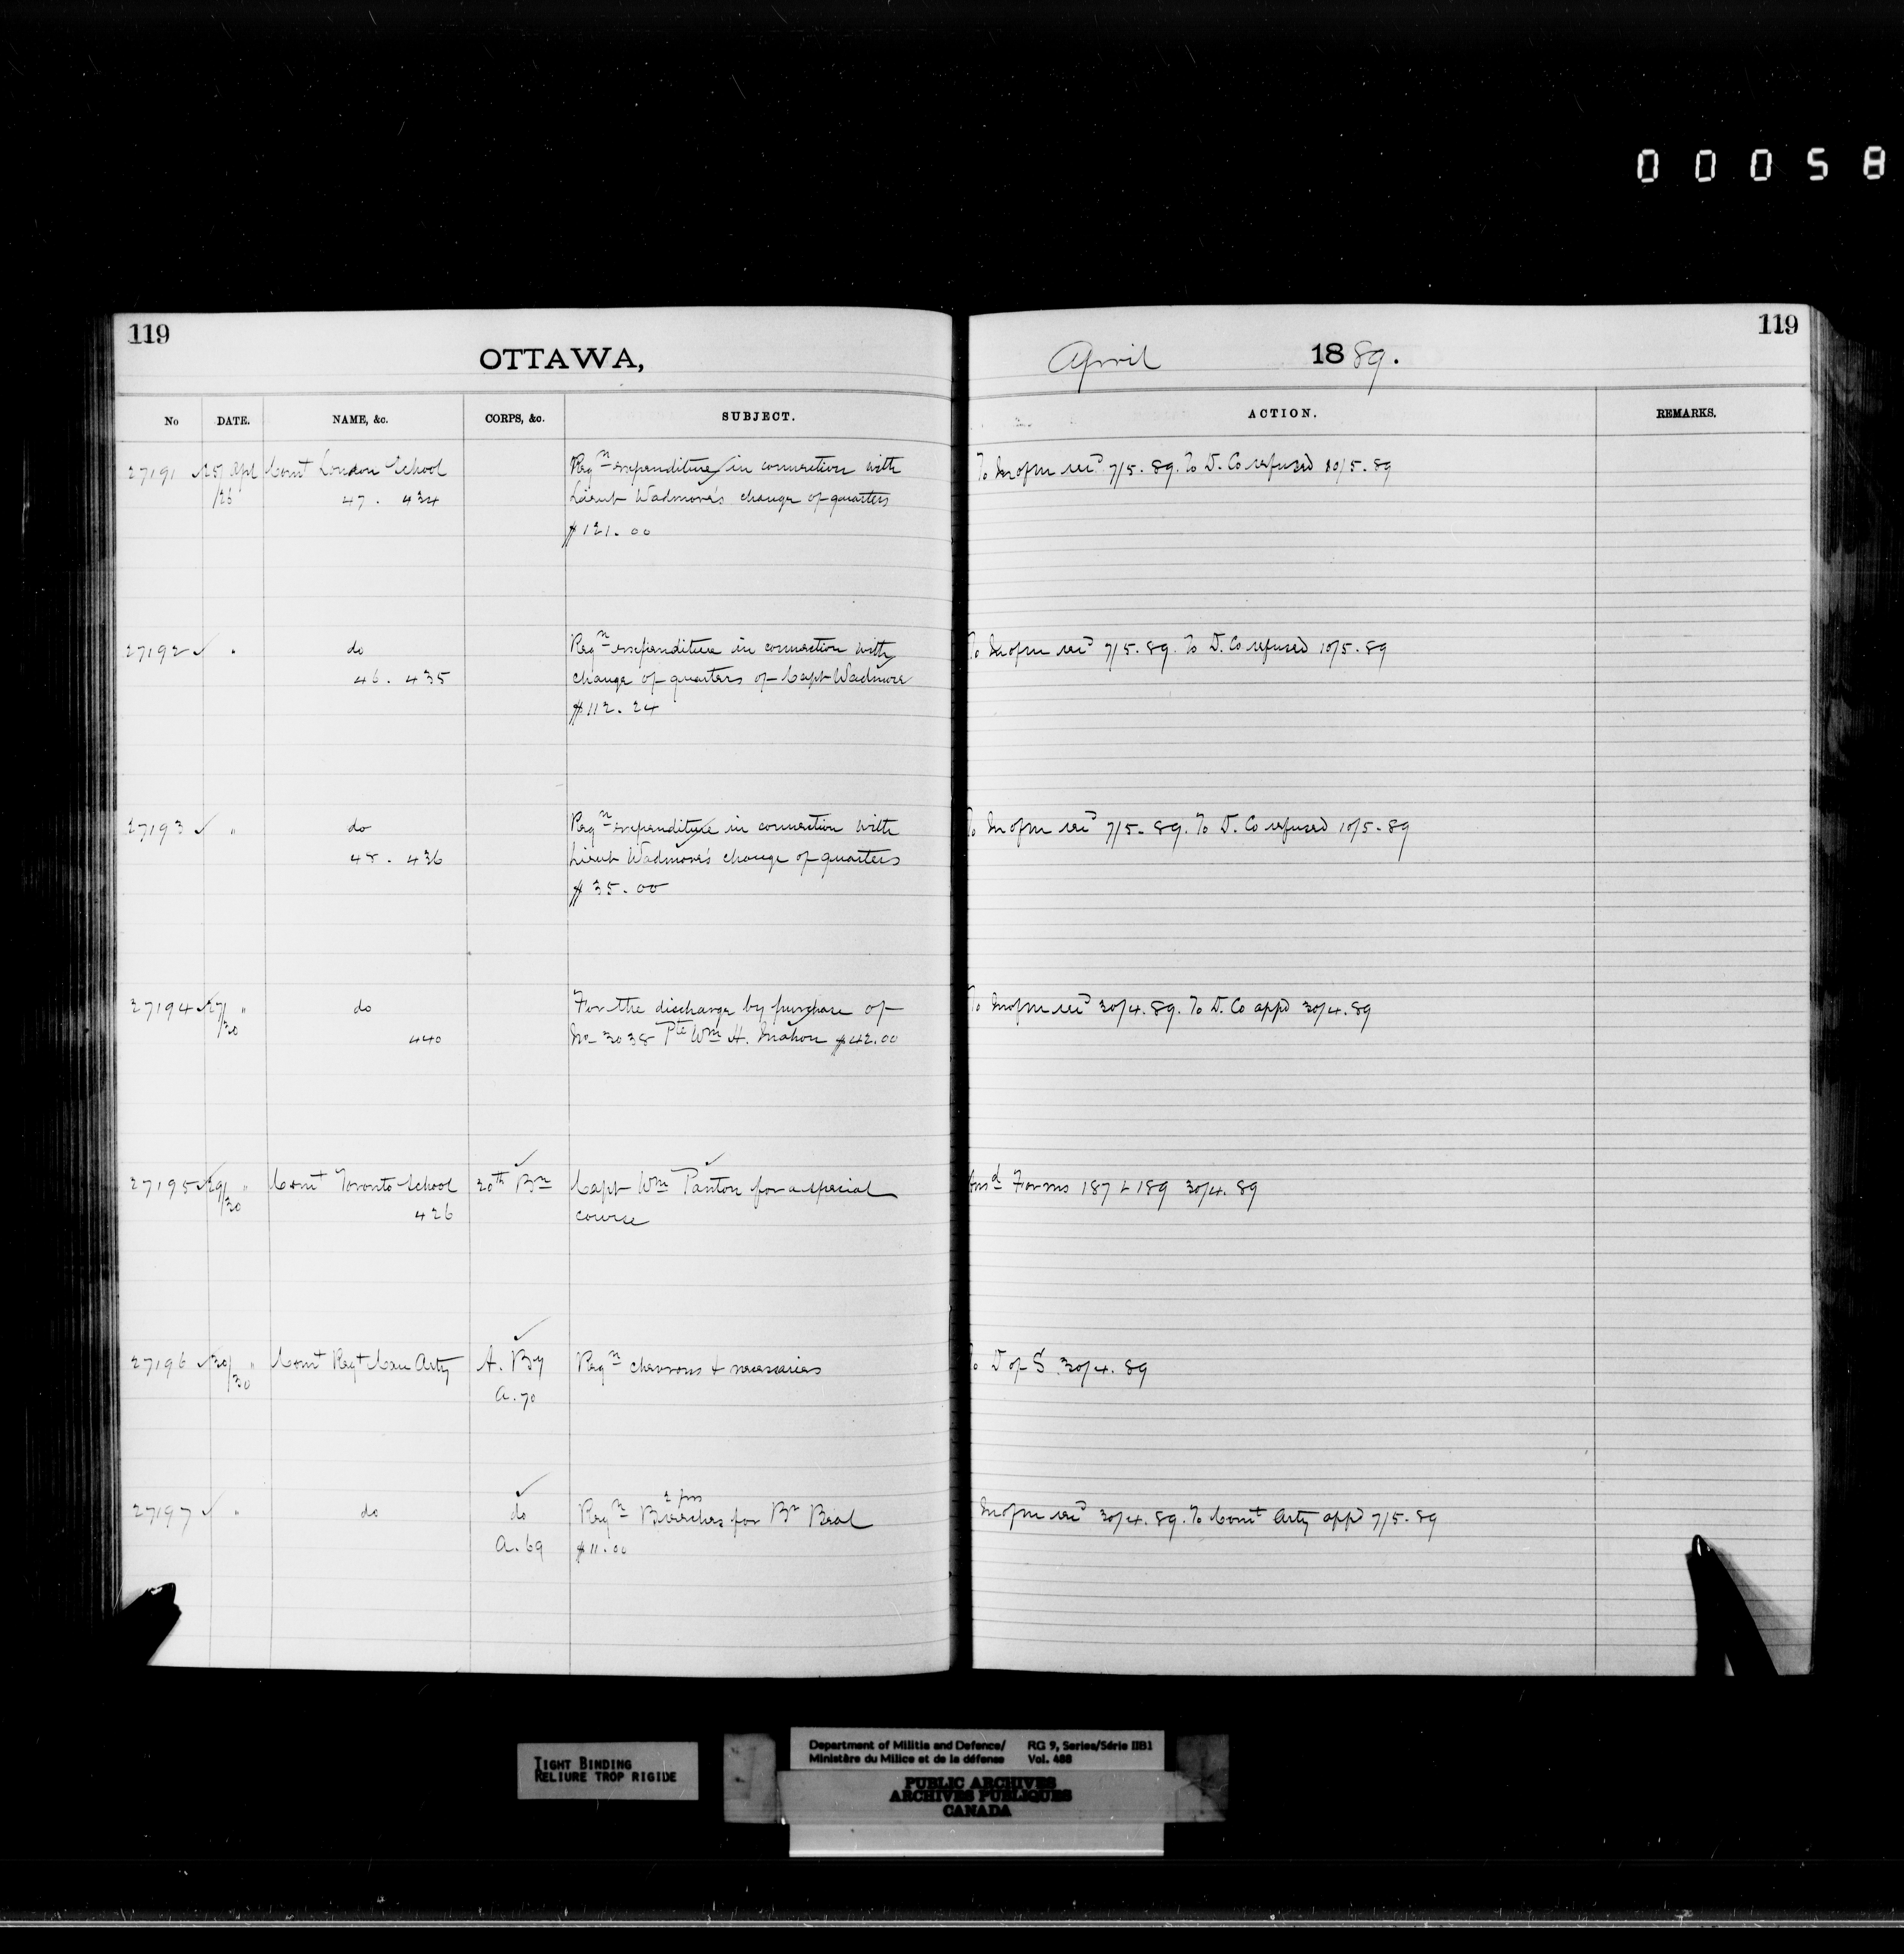 00058
119
OTTAWA,
No DATE. NAME, &c. CORPS, &c. SUBJECT.
27191 ✓ 25/26 Apl Comt London School Reqn expenditure in connection with
47 . 434 Lieut Wadmore's change of quarters
$121.00
27192 ✓ " do Reqn expenditure in connection with
46 . 435 change of quarters of Capt Wadmore
$112.24
27193 ✓ " do Reqn expenditure in connection with
48 . 436 Lieut Wadmore's change of quarters
$35.00
27194 ✓ 27/30 " do For the discharge by purchase of
440 No 3038 Pte Wm H. Mahon $42.00
27195 ✓ 29/30 " Comt Toronto School 20th Bn Capt Wm Panton for a special
426 course
27196 ✓ 30/30 " Comt Regt Can Arty A. By Reqn chevrons & necessaries
A.70
27197 ✓ " do do Reqn 2 prs Breeches for Br Beal
A.69 $11.00
119
April 1889.
ACTION. REMARKS.
To M of M recd 7/5.89. To D. Co refused 10/5.89
To M of M recd 7/5.89. To D. Co refused 10/5.89
To M of M recd 7/5.89. To D. Co refused 10/5.89
To M of M recd 30/4.89. To D. Co appd 30/4.89
Ansd Forms 187 & 189 30/4.89
To D of S. 30/4.89
M of M recd 30/4.89. To Comt Arty appd 7/5.89
TIGHT BINDING
RELIURE TROP RIGIDE
Department of Militia and Defence/ RG 9, Series/Série IIB1
Ministère du Milice et de la défense Vol. 488
PUBLIC ARCHIVES
ARCHIVES PUBLIQUES
CANADA